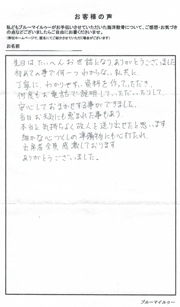 お客様の声
私どもブルーマイルゥーがお手伝いさせていただいた海洋散骨について、ご感想・お気づきの点などございましたらご自由にお書きくださいませ。
お名前
先日はたいへんお世話になりありがとうございました
初めての事で何一つわからない私共に
丁寧に、わかりやすい資料を作ってくださり、
何度もお電話で説明していただいたりして
安心しておまかせする事ができました。
当日お天気にも恵まれた事もあり、
本当に気持ちよく故人を送り出せたと思います
細かな心づくしの準備物にも心打たれ
出席者全員感激しております
ありがとうございました。
ブルーマイルゥー